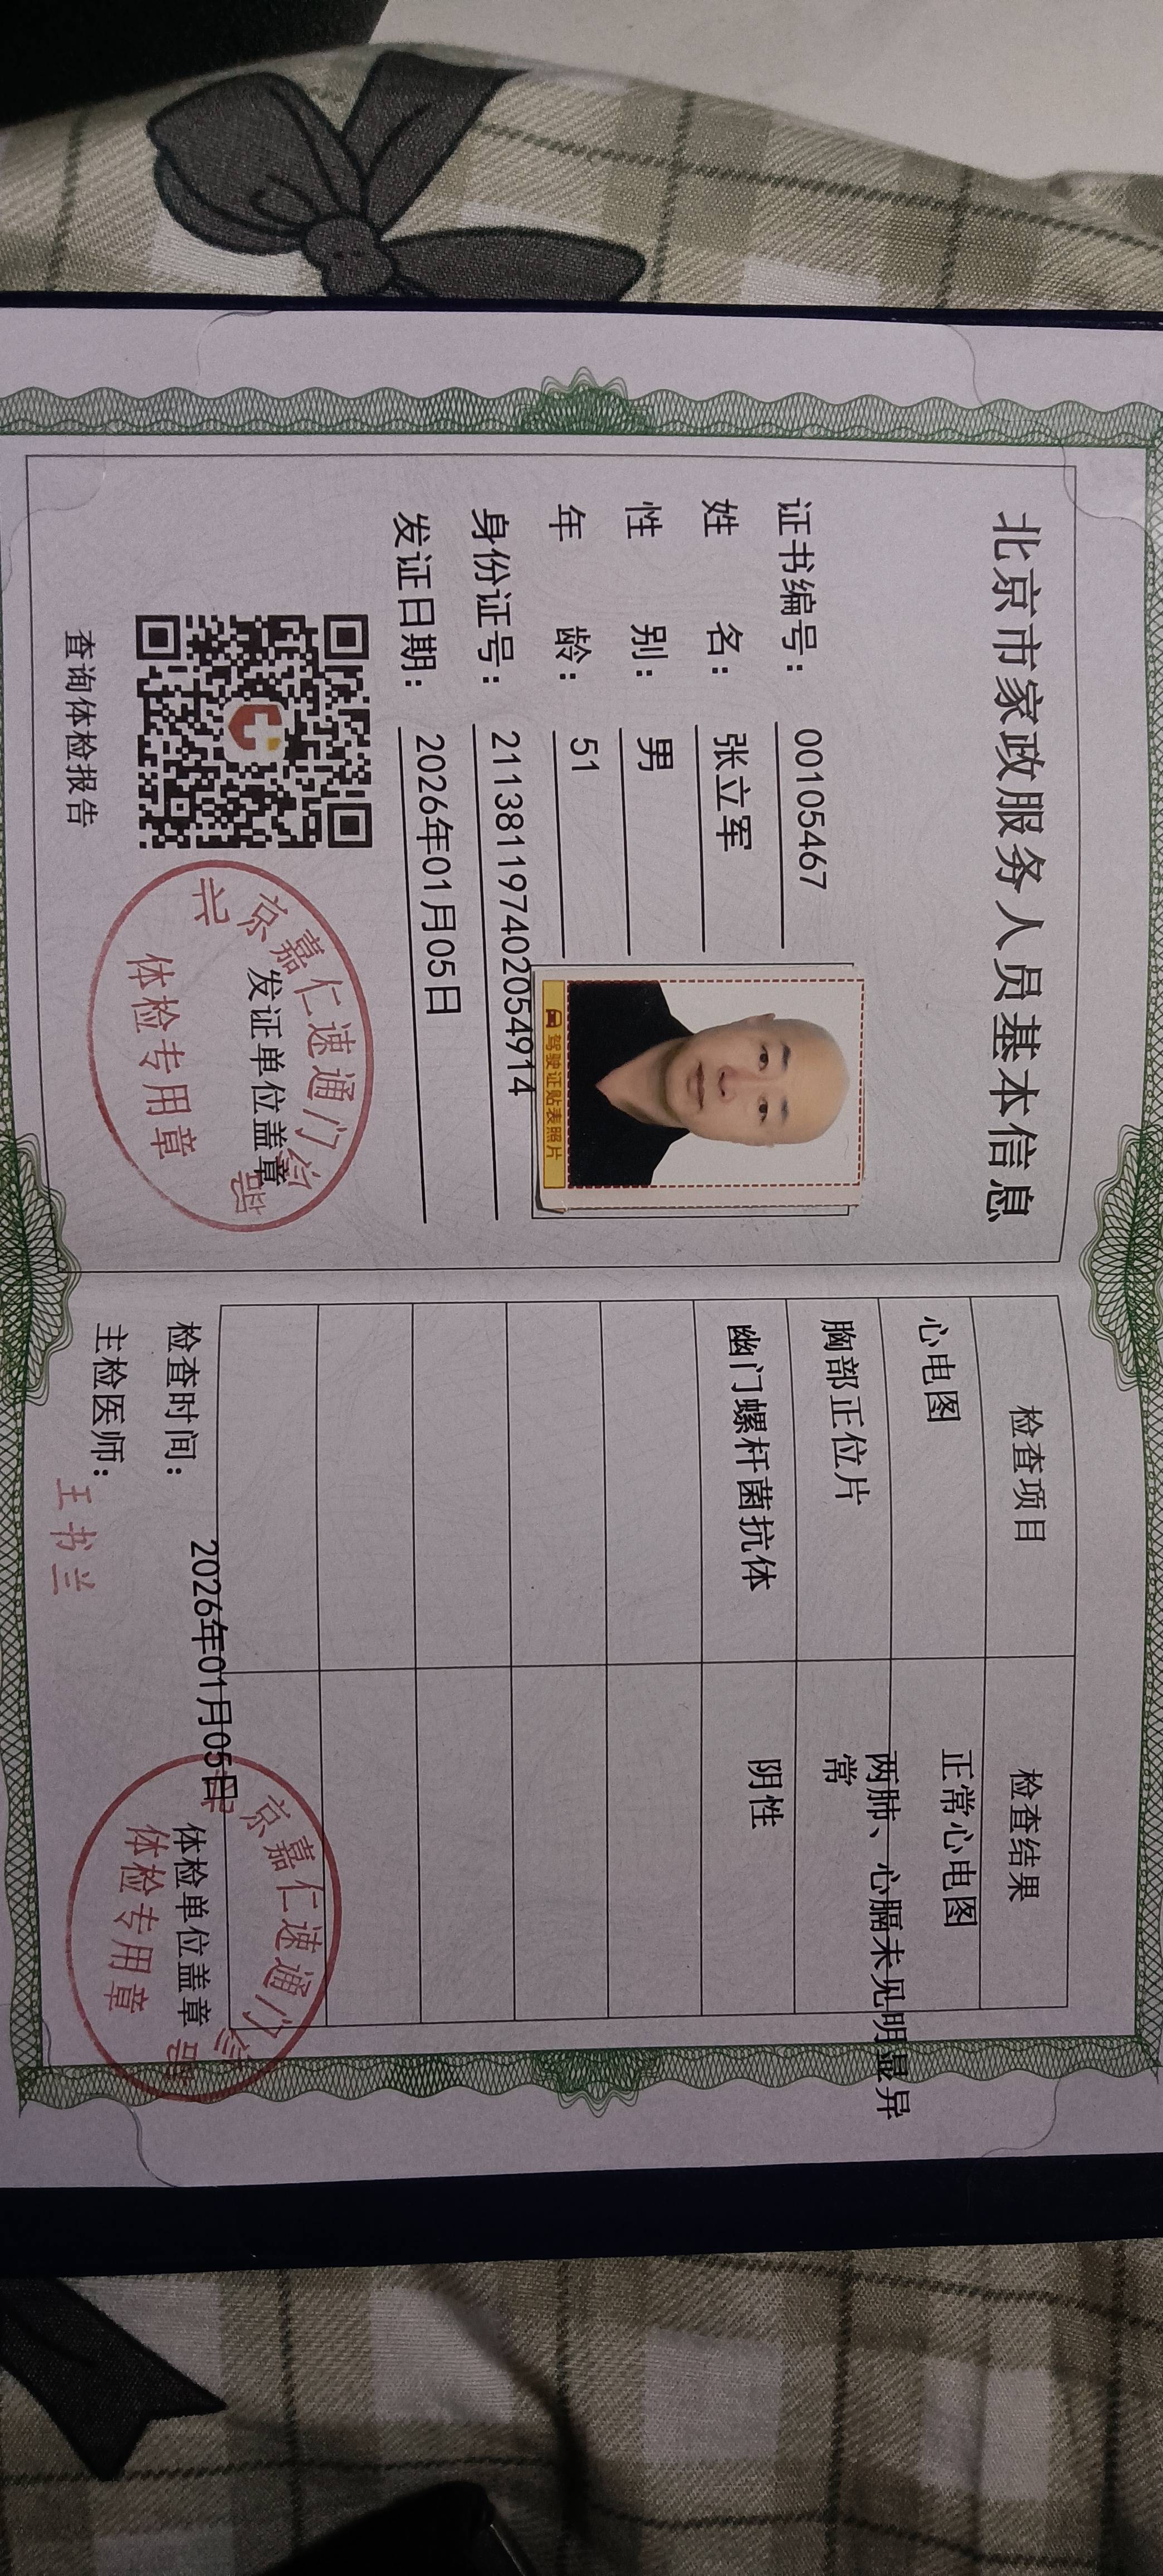 北京市家政服务人员基本信息
证书编号： 00105467
姓 名： 张立军
性 别： 男
年 龄： 51
身份证号： 211381197402054914
发证日期： 2026年01月05日
驾驶证贴表照片
查询体检报告
北京嘉仁速通门诊部
发证单位盖章
体检专用章
检查项目 检查结果
心电图 正常心电图
胸部正位片 两肺、心膈未见明显异
常
幽门螺杆菌抗体 阴性
检查时间： 2026年01月05日
主检医师： 王书兰
京嘉仁速通门诊部
体检单位盖章
体检专用章